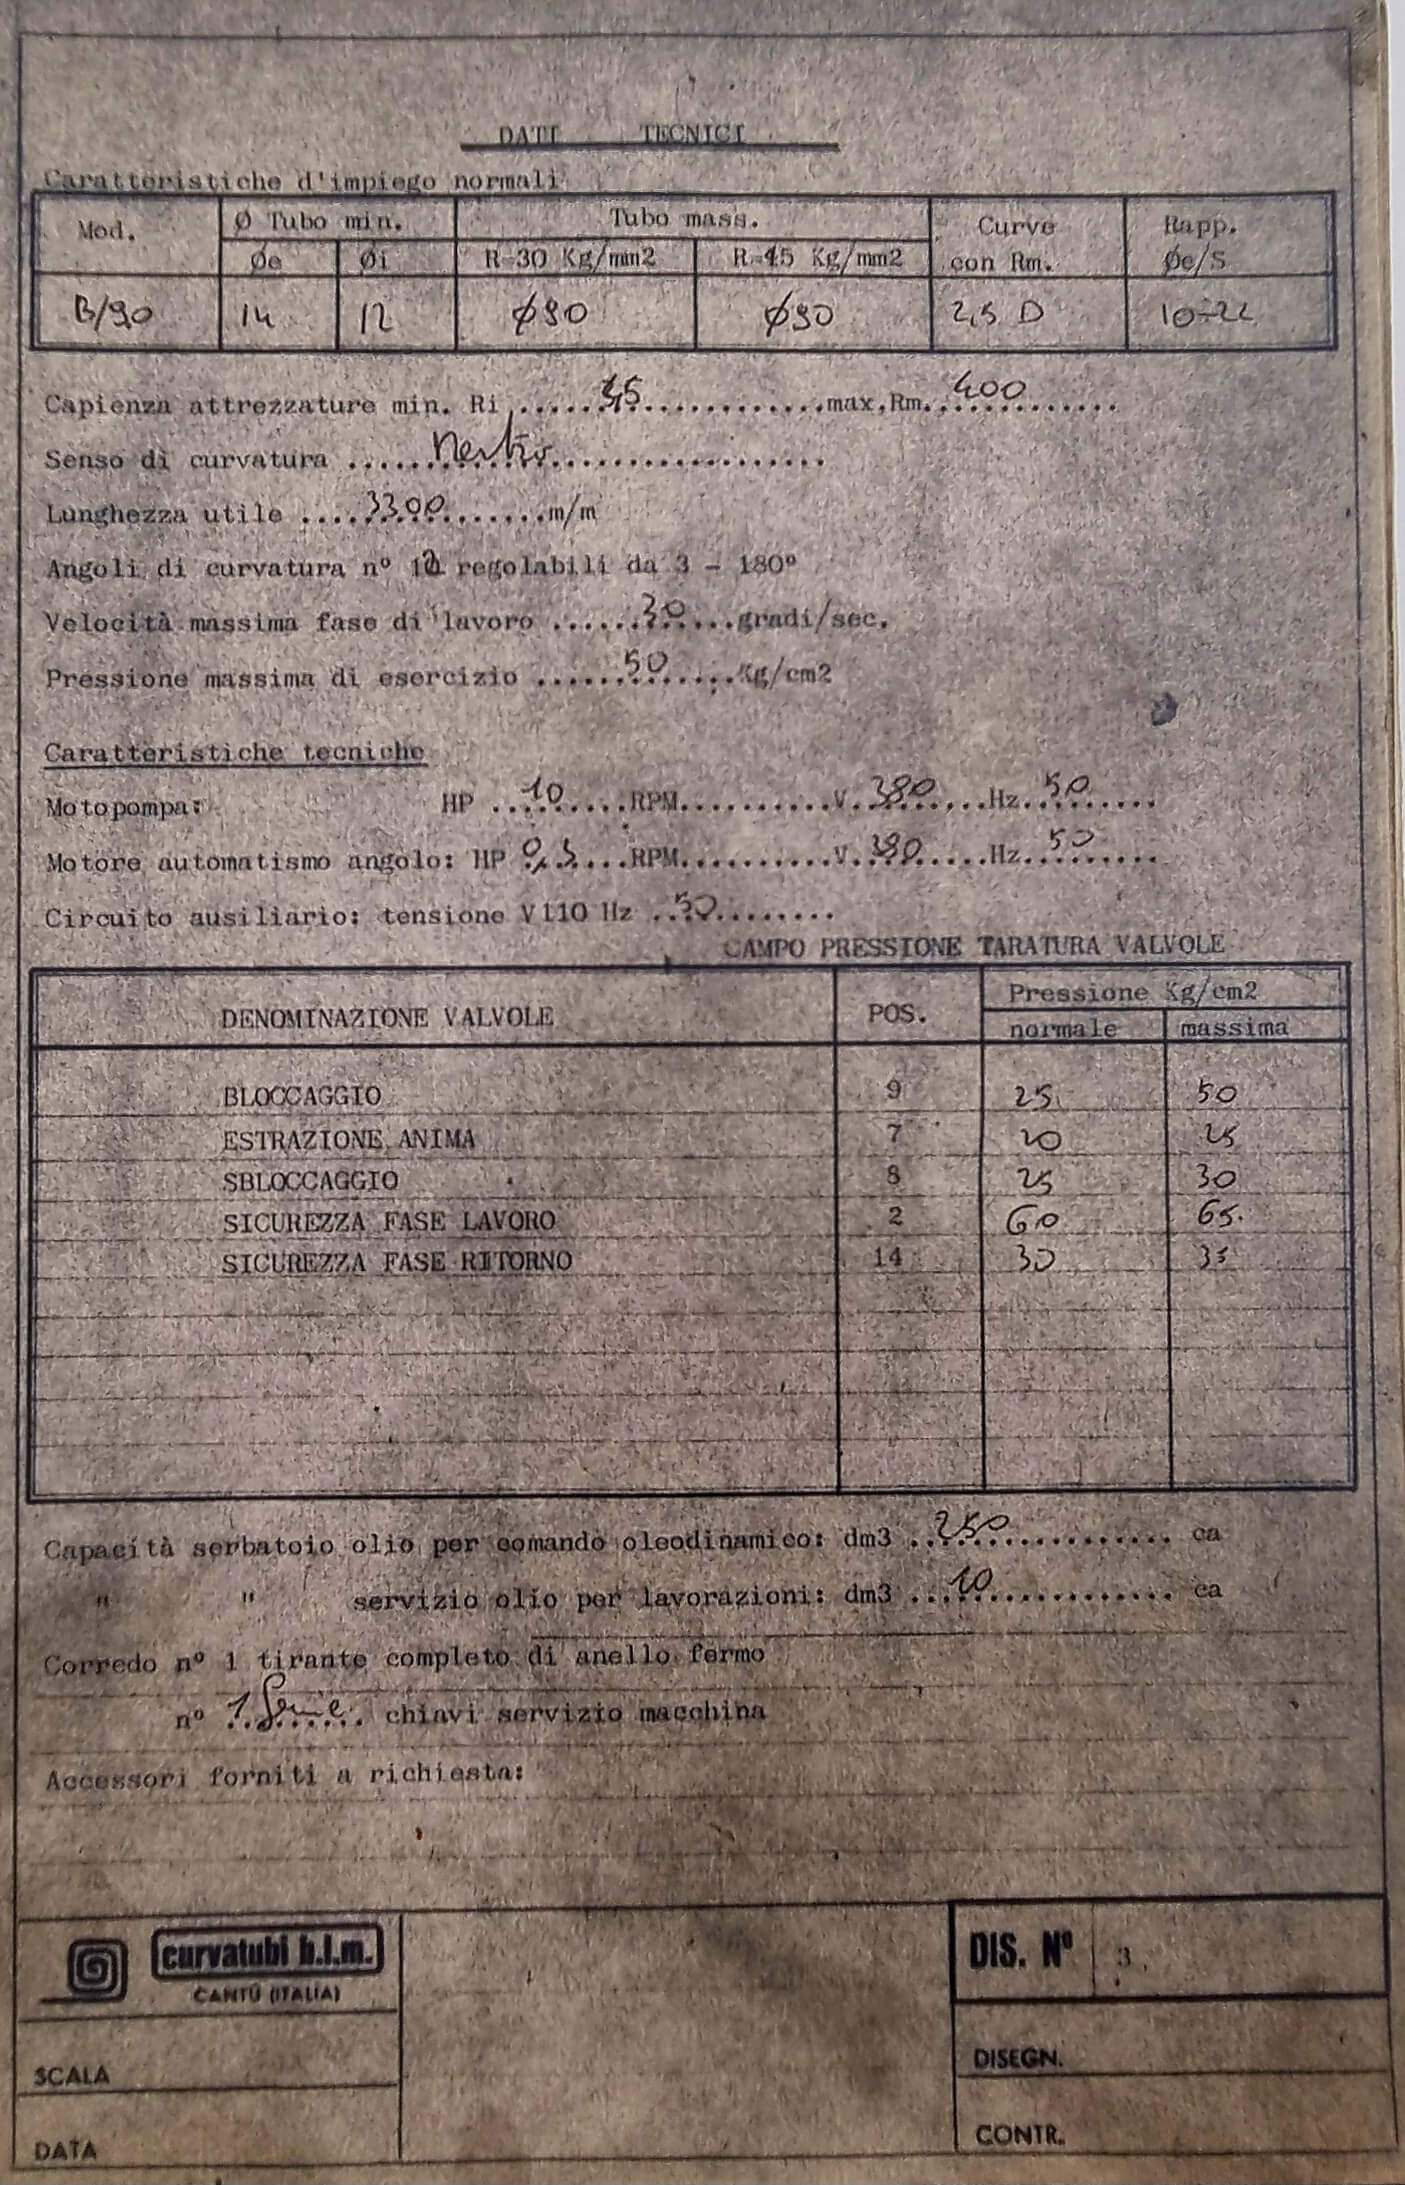 DATI TECNICI
Caratteristiche d'impiego normali
Mod. Ø Tubo min. Tubo mass. Curve Rapp.
Øe Øi R=30 Kg/mm2 R=45 Kg/mm2 con Rm. Øe/S
B/90 14 12 ϕ90 ϕ90 2,5 D 10÷22
Capienza attrezzature min. Ri ...............max.Rm. 400
Senso di curvatura ...............
Lunghezza utile ....3300.......m/m
Angoli di curvatura nº 12 regolabili da 3 - 180º
Velocità massima fase di lavoro ......30....gradi/sec.
Pressione massima di esercizio ......50.....Kg/cm2
Caratteristiche tecniche
Motopompa: HP ...10....RPM...........V.380...Hz.50......
Motore automatismo angolo: HP ....RPM...........V.380....Hz.50......
Circuito ausiliario: tensione V110 Hz ..50........
CAMPO PRESSIONE TARATURA VALVOLE
DENOMINAZIONE VALVOLE POS. Pressione Kg/cm2
normale massima
BLOCCAGGIO 9 25 50
ESTRAZIONE ANIMA 7 20 25
SBLOCCAGGIO 8 25 30
SICUREZZA FASE LAVORO 2 60 65
SICUREZZA FASE RITORNO 14 30 35
Capacità serbatoio olio per comando oleodinamico: dm3 ..250............ ca
" " servizio olio per lavorazioni: dm3 ...10............ ca
Corredo nº 1 tirante completo di anello fermo
nº 1 Serie chiavi servizio macchina
Accessori forniti a richiesta:
curvatubi b.l.m.
CANTÙ (ITALIA)
DIS. Nº 3
SCALA
DISEGN.
DATA
CONTR.